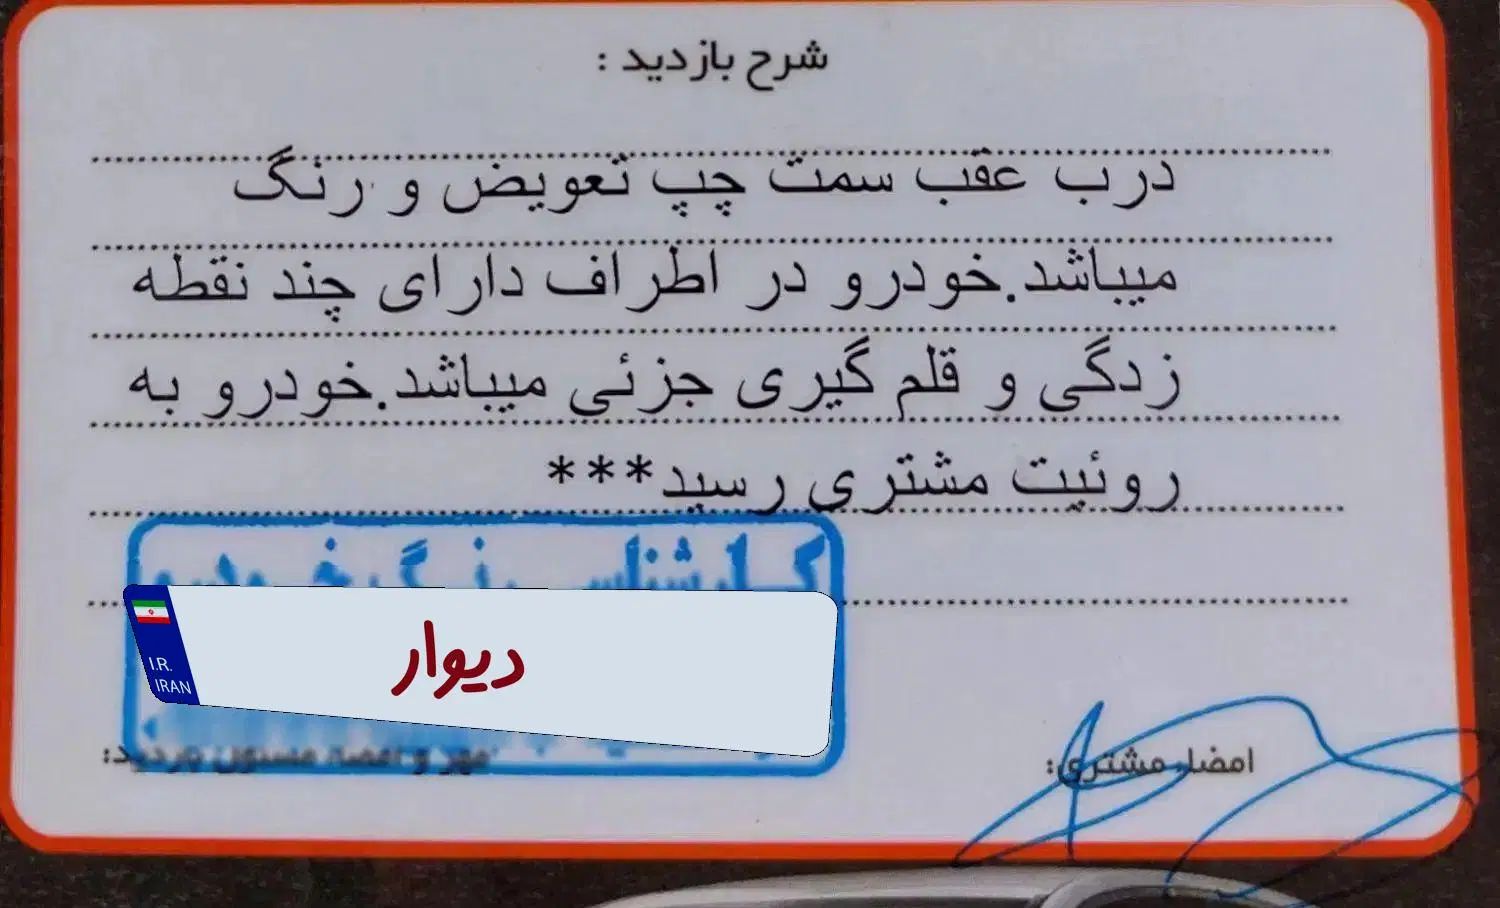 شرح بازدید :
درب عقب سمت چپ تعویض و رنگ
میباشد.خودرو در اطراف دارای چند نقطه
زدگی و قلم گیری جزئی میباشد.خودرو به
روئیت مشتری رسید***
کارشناسی رنگ خودرو
دیوار
I.R.
IRAN
امضاء مشتری:
مهر و امضاء مسئول بازدید: